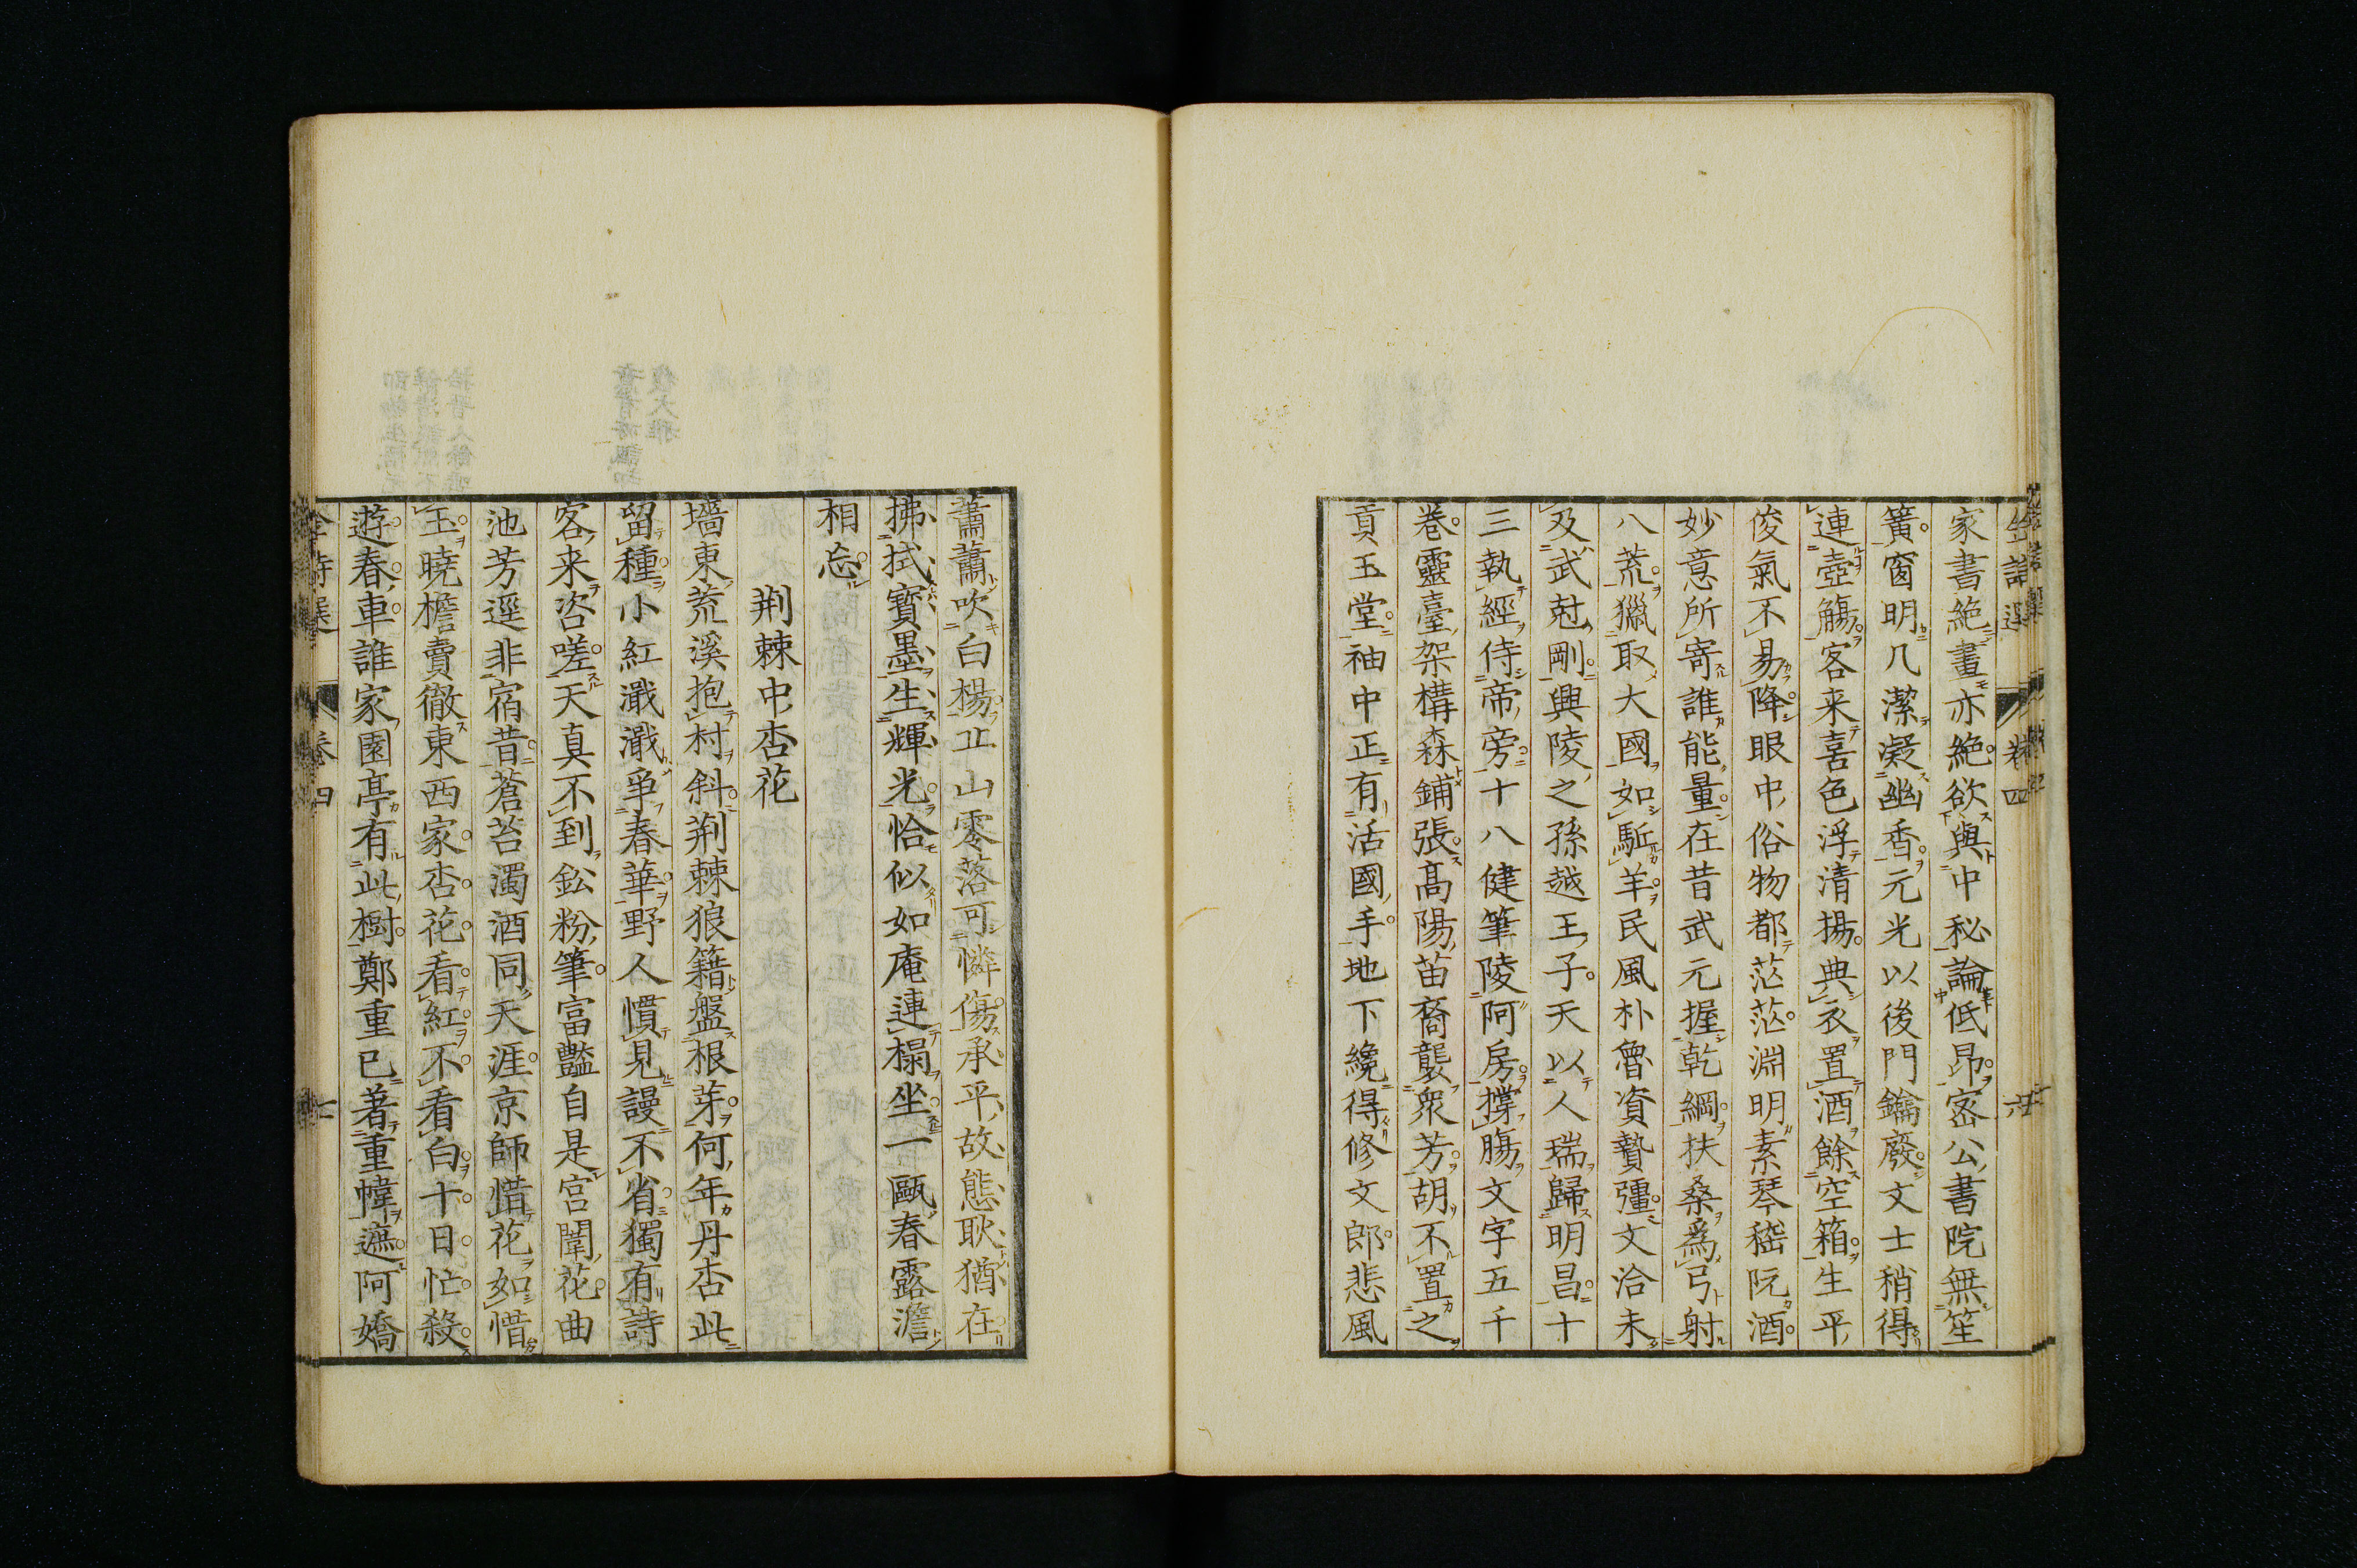 家書絶畫亦絶欲與中秘論低昂密公書院無笙
簧窗明几潔凝幽香元光以後門鑰廢文士稍得
連壺觴客来喜色浮清揚典衣置酒餘空箱生平
俊氣不易降眼中俗物都茫茫淵明素琴嵇阮酒
妙意所寄誰能量在昔武元握乾綱扶桑爲弓射
八荒獵取大國如駈羊民風朴魯資贄彊文洽未
及武尅剛興陵之孫越王子天以人瑞歸明昌十
三執經侍帝旁十八健筆陵阿房撑腸文字五千
卷靈臺架構森鋪張高陽苗裔襲衆芳胡不置之
貢玉堂袖中正有活國手地下纔得修文郎悲風
蕭蕭吹白楊丘山零落可憐傷承平故態耿猶在
拂拭寶墨生輝光恰似如庵連榻坐一甌春露澹
相忘
荆棘中杏花
墻東荒溪抱村斜荆棘狼籍盤根芽何年丹杏此
留種小紅濈濈爭春華野人慣見謾不省獨有詩
客来咨嗟天真不到鉛粉筆富豔自是宮闈花曲
池芳逕非宿昔蒼苔濁酒同天涯京師惜花如惜
玉曉檐賣徹東西家杏花看紅不看白十日忙殺
遊春車誰家園亭有此樹鄭重已著重幃遮阿嬌